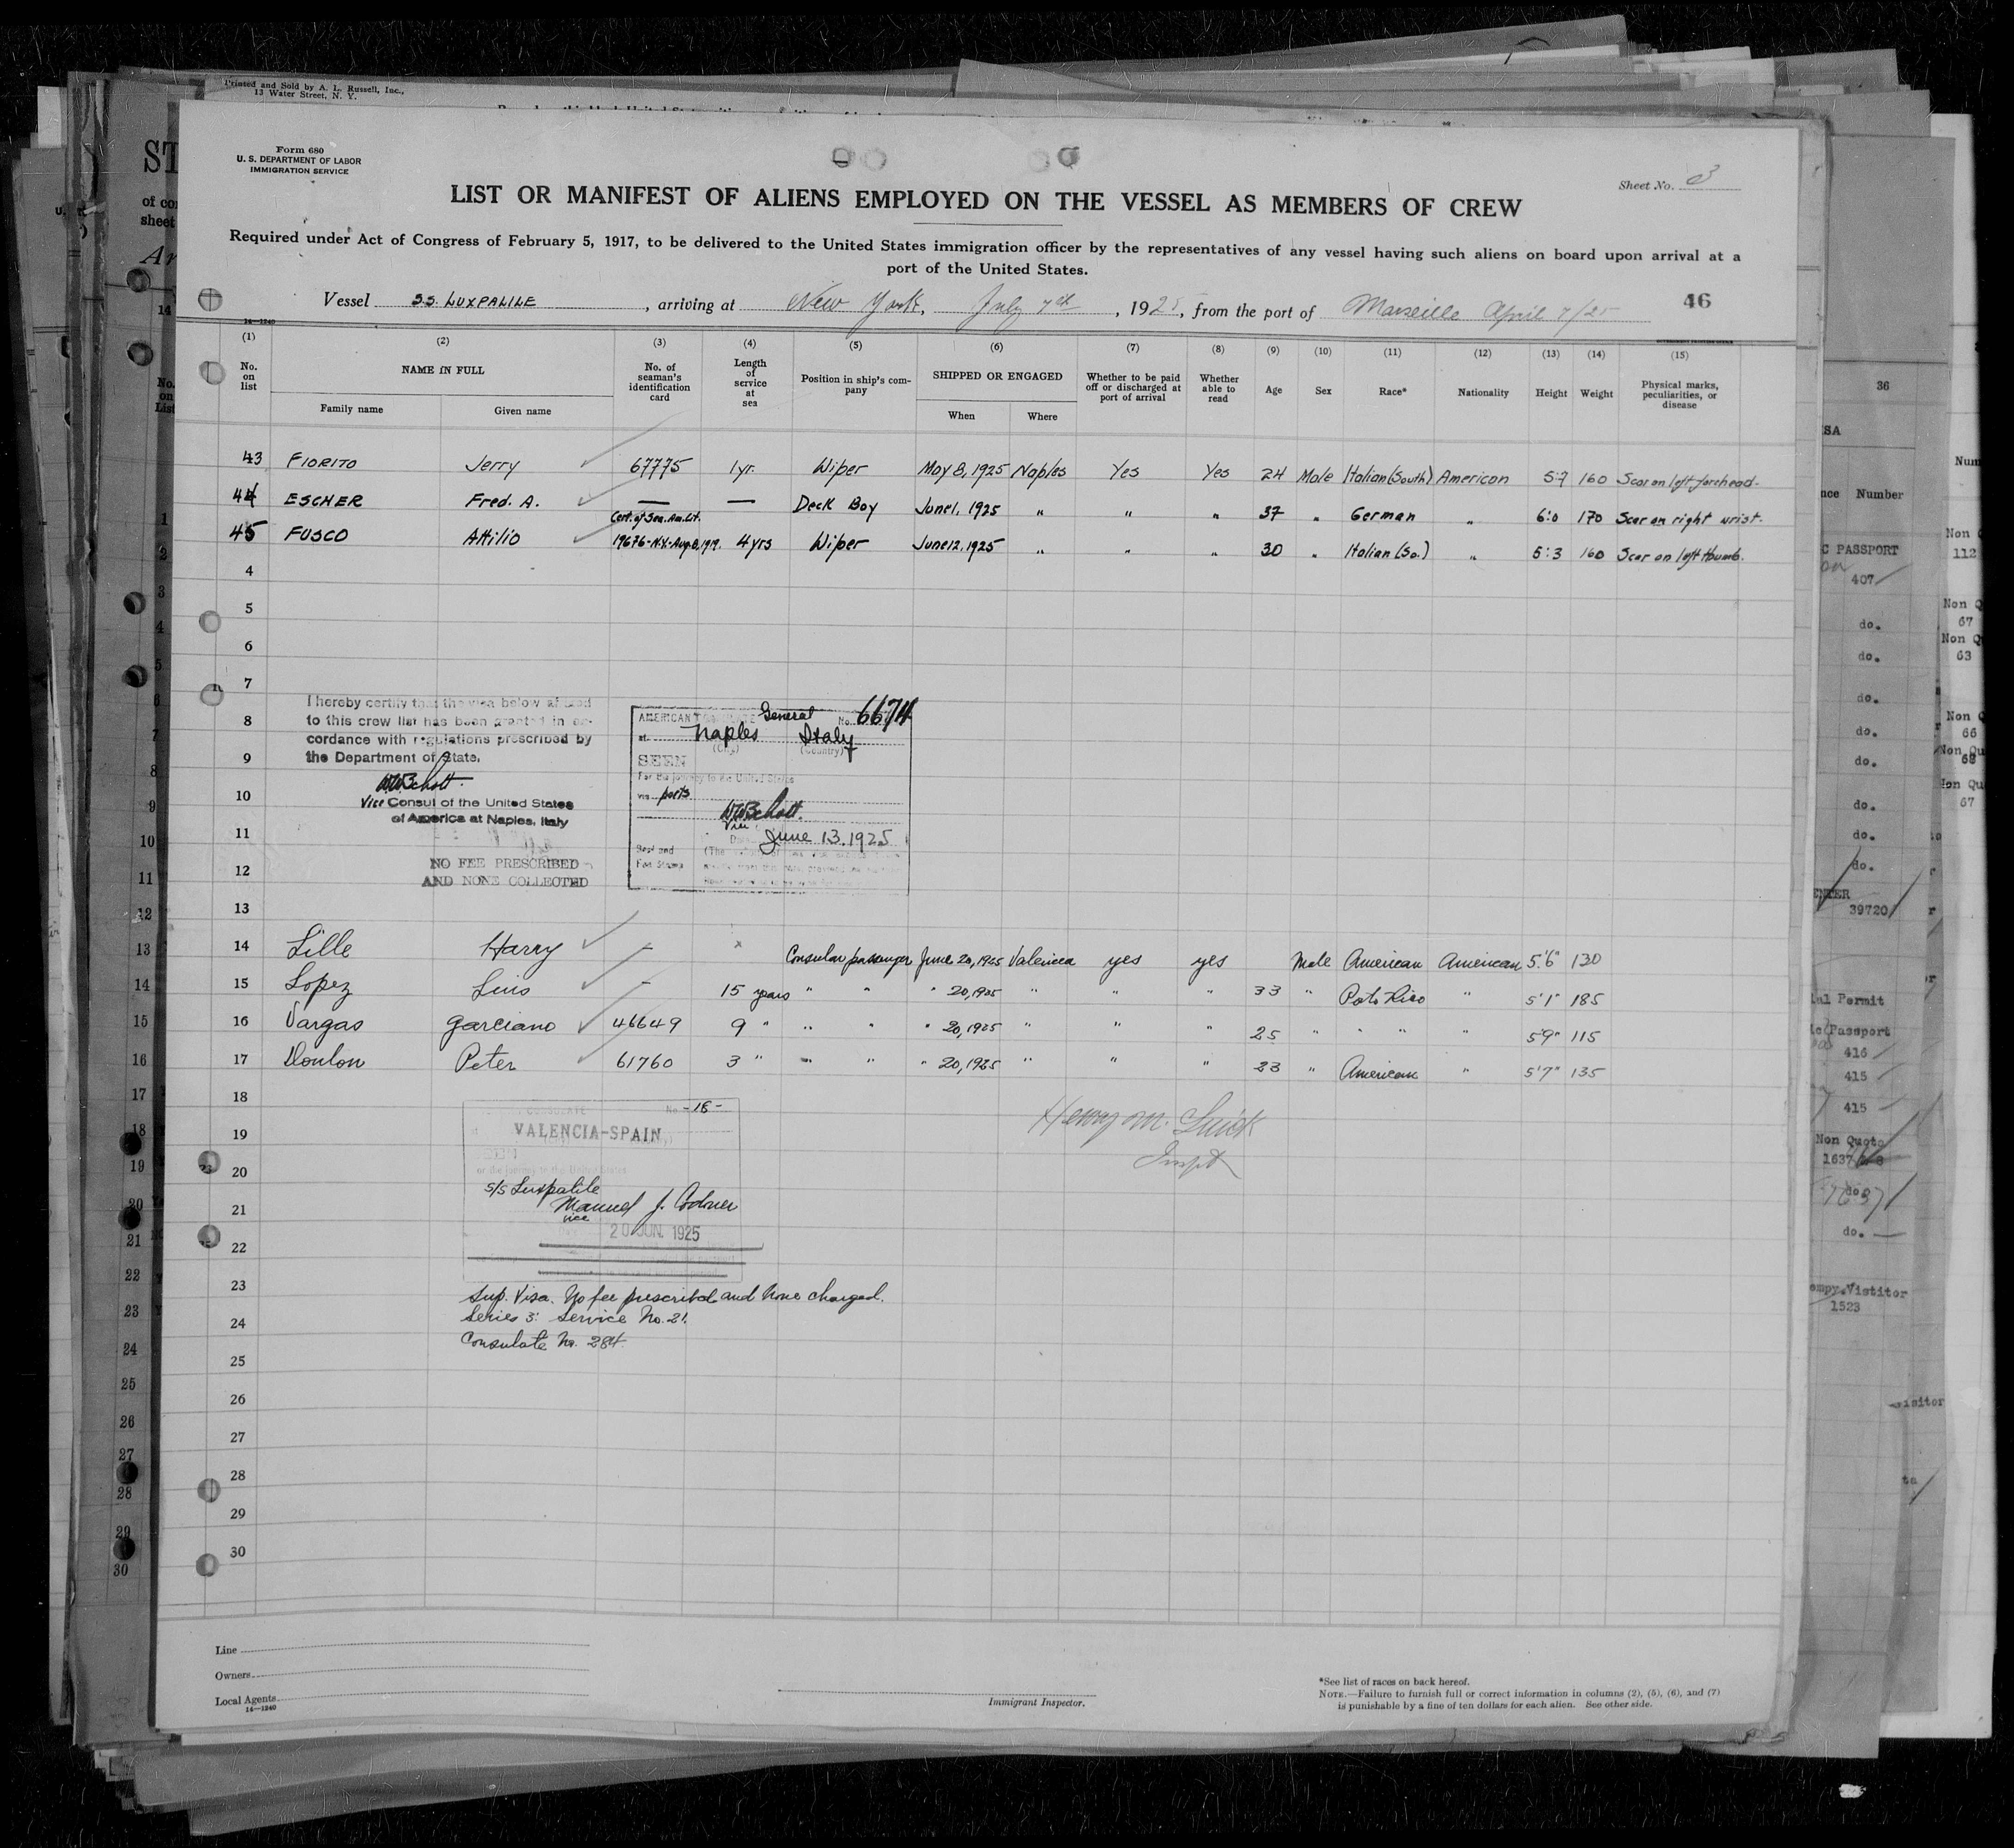 Printed and Sold by A. L. Russell, Inc.,
13 Water Street, N. Y.
Form 680
U. S. DEPARTMENT OF LABOR
IMMIGRATION SERVICE
Sheet No. 3
LIST OR MANIFEST OF ALIENS EMPLOYED ON THE VESSEL AS MEMBERS OF CREW
Required under Act of Congress of February 5, 1917, to be delivered to the United States immigration officer by the representatives of any vessel having such aliens on board upon arrival at a
port of the United States.
Vessel S.S. LUXPALILE, arriving at New York, July 7th, 1925, from the port of Marseille April 7/25
46
14—1240
(1) (2) (3) (4) (5) (6) (7) (8) (9) (10) (11) (12) (13) (14) (15)
No. on list
NAME IN FULL
Family name Given name
No. of seaman's identification card
Length of service at sea
Position in ship's company
SHIPPED OR ENGAGED
When Where
Whether to be paid off or discharged at port of arrival
Whether able to read
Age
Sex
Race*
Nationality
Height
Weight
Physical marks, peculiarities, or disease
43 FIORITO Jerry 67775 1yr. Wiper May 8, 1925 Naples Yes Yes 24 Male Italian (South) American 5:7 160 Scar on left forehead.
44 ESCHER Fred. A. — — Deck Boy June 1, 1925 " " " 37 " German " 6:0 170 Scar on right wrist.
45 FUSCO Attilio Cert. of Sea. Am. Cit. 19676-N.Y.-Aug. 8, 1919. 4 yrs Wiper June 12, 1925 " " " 30 " Italian (So.) " 5:3 160 Scar on left thumb.
4
5
6
7
8
9
10
11
12
13
I hereby certify that the visa below affixed
to this crew list has been granted in ac-
cordance with regulations prescribed by
the Department of State.
Vice Consul of the United States
of America at Naples, Italy
NO FEE PRESCRIBED
AND NONE COLLECTED
AMERICAN CONSULATE General No. 6674
at Naples Italy
(City) (Country)
SEEN
For the journey to the United States
via ports
Vice
June 13. 1925
Seal and
Fee Stamp
14 Lille Harry - Consular passenger June 20, 1925 Valencia yes yes Male American American 5'6" 130
15 Lopez Luis - 15 years " " " 20, 1925 " " " 33 " Porto Rico " 5'1" 185
16 Vargas Garciano 46649 9 " " " " 20, 1925 " " " 25 " " " " 5'9" 115
17 Donlon Peter 61760 3 " " " " 20, 1925 " " " 23 " American " 5'7" 135
18
19
20
21
22
23
24
25
26
27
28
29
30
CONSULATE No. -18-
VALENCIA-SPAIN
SEEN
For the journey to the United States
S/S Luxpalile
Manuel J. Codoner
vice
20 JUN. 1925
Henry M.
Inspt
Sup. Visa. No fee prescribed and none charged.
Series 3: Service No. 21.
Consulate No. 284.
Line
Owners
Local Agents
14—1240
Immigrant Inspector.
*See list of races on back hereof.
NOTE.—Failure to furnish full or correct information in columns (2), (5), (6), and (7)
is punishable by a fine of ten dollars for each alien. See other side.
36
Number
PASSPORT
407
do.
do.
do.
do.
do.
do.
do.
do.
39720
Permit
Passport
416
415
415
Non Quota
1637
do.
do.
Vistitor
1523
Non Q
112
Non Q
67
Non Q
63
Non Q
66
Non Qu
68
Non Qu
67